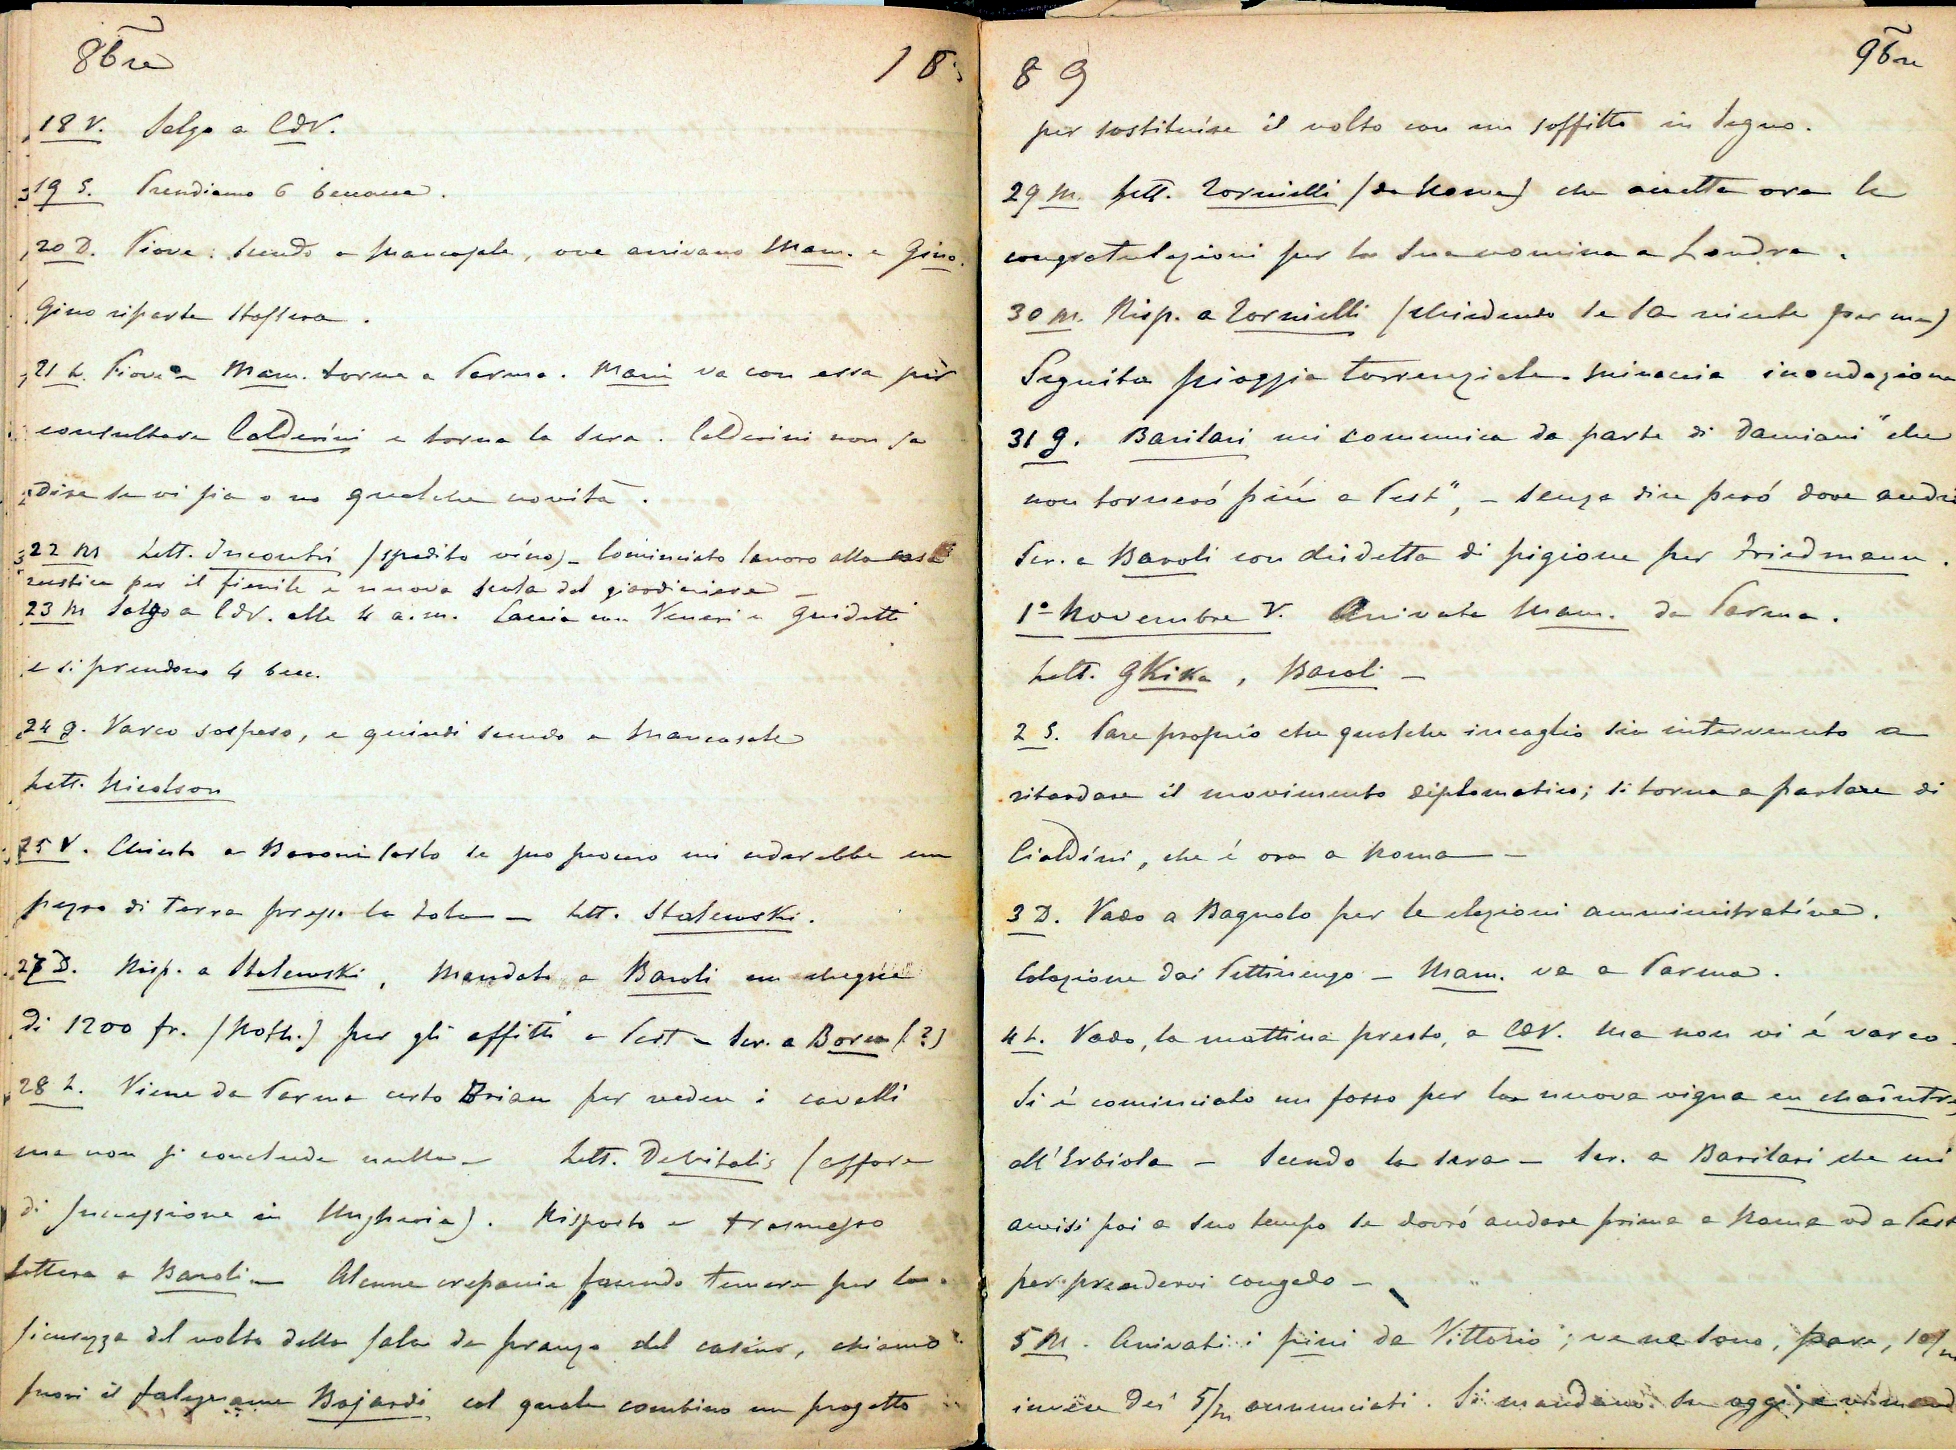 8bre
18
18 V. Salgo a CdV.
19 S. Prendiamo 6 beccacce.
20 D. Piove: scendo a Mancasale, ove arrivano Mam. e Gino.
Gino riparte stassera.
21 L. Piove Mam. torna a Parma. Marii va con essa per
consultare Calderini e torna la sera. Calderini non sa
dire se vi sia o no qualche novità.
22 M Lett. Incontri (spedito vino) – Cominciato lavoro alla casa
rustica per il fienile e nuova scala del giardiniere –
23 M Salgo a CdV. alle 4 a.m. Caccia con Veneri e Guidetti
e si prendono 4 becc.
24 G. Varco sospeso, e quindi scendo a Mancasale
Lett. Nicolson
25 V. Chiesto a Baroni Carlo se suo suocero mi cederebbe un
pezzo di terra presso la Sola – Lett. Stalewski.
27 D. Risp. a Stalewski, Mandato a Baroli un chèque
di 1200 fr. (Roth.) per gli affitti a Pest – Scr. a Borea (?)
28 L. Viene da Parma certo Brian per vedere i cavalli
ma non si conclude nulla – Lett. DeVitalis (affare
di successione in Ungheria). Risposto e trasmesso
lettera a Baroli – Alcune crepacce facendo temere per la
sicurezza del volto della sala da pranzo del casino, chiamo
fuori il falegname Bojardi col quale combino un progetto
89
9bre
per sostituire il volto con un soffitto in legno.
29 M. Lett. Tornielli (da Roma) che accetta ora le
congratulazioni per la sua nomina a Londra.
30 M. Risp. a Tornielli (chiedendo se sa niente per me)
Seguita pioggia torrenziale. Minaccia inondazione
31 G. Barilari mi comunica da parte di Damiani "che
non tornerò più a Pest", – senza dire però dove andrò
Scr. a Baroli con disdetta di pigione per Friedmann.
1º Novembre V. Arrivata Mam. da Parma.
Lett. GKika, Baroli –
2 S. Pare proprio che qualche incaglio sia intervenuto a
ritardare il movimento diplomatico; si torna a parlare di
Cialdini, che è ora a Roma –
3 D. Vado a Bagnolo per le elezioni amministrative.
Colazione dai Pettinengo – Mam. va a Parma.
4 L. Vado, la mattina presto, a CdV. ma non vi è varco.
Si è cominciato un fosso per la nuova vigna en chaintre
all'Erbiola – Scendo la sera – Scr. a Barilari che mi
avvisi poi a suo tempo se dovrò andare prima a Roma od a Pest
per prendervi congedo –
5 M. Arrivati i pini da Vittorio; ve ne sono, pare, 10/m
invece dei 5/m annunciati. Si mandano su oggi, e vi mand